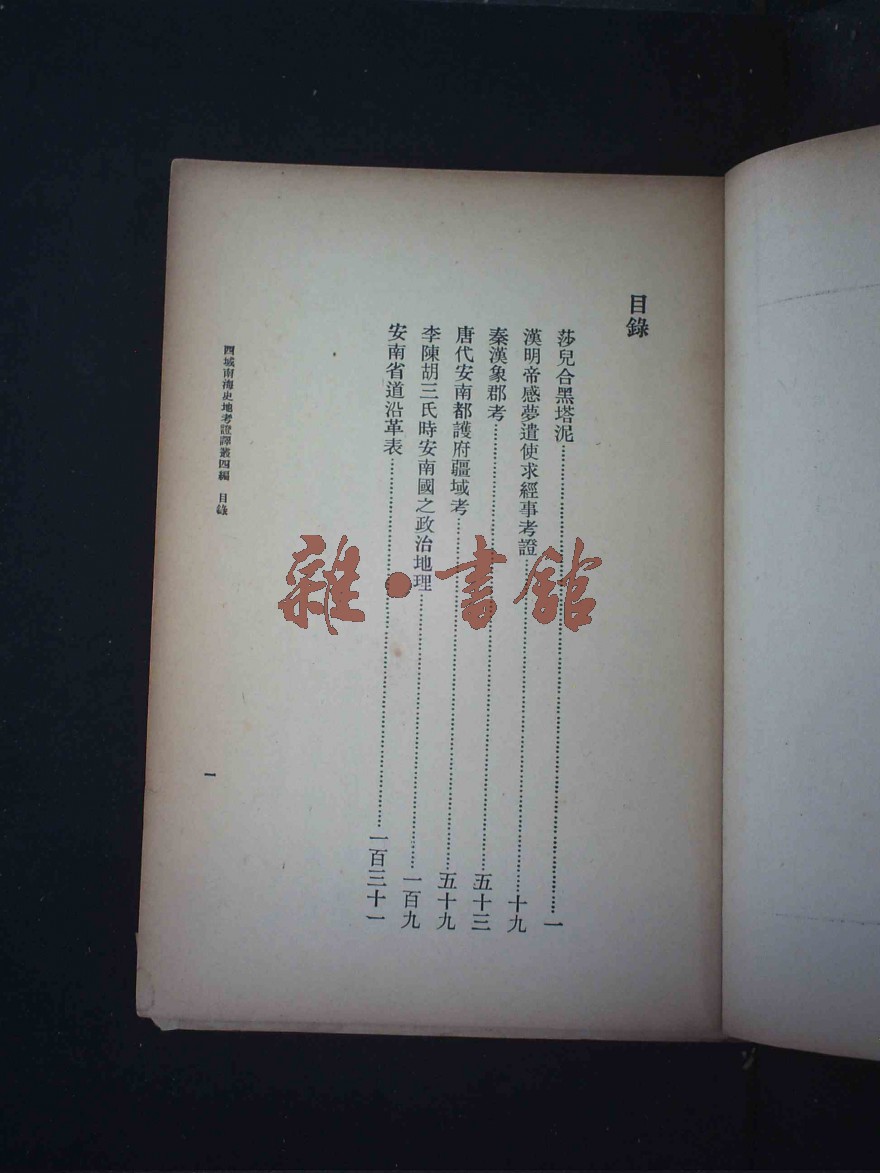 目錄
莎兒合黑塔泥……一
漢明帝感夢遣使求經事考證……十九
秦漢象郡考……五十三
唐代安南都護府疆域考……五十九
李陳胡三氏時安南國之政治地理……一百九
安南省道沿革表……一百三十一
西域南海史地考證譯叢四編 目錄
一
雜·書館